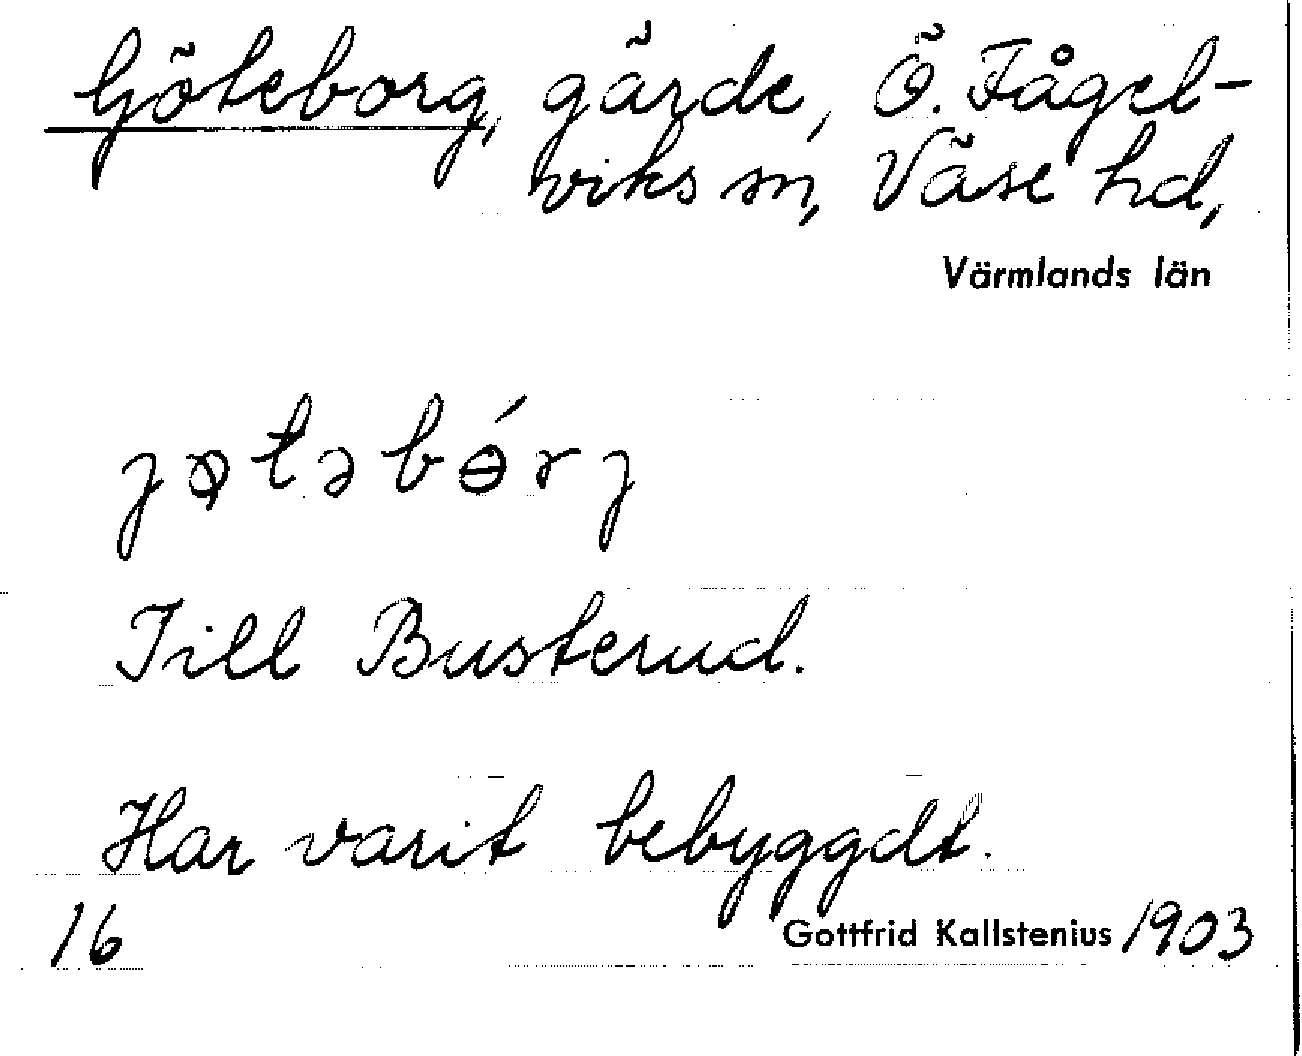 Göteborg, gärde, Ö. Fågel-
viks sn, Väse hd,
Värmlands län
jøtəbɵ́rj
Till Busterud.
Har varit bebyggdt.
16 Gottfrid Kallstenius 1903